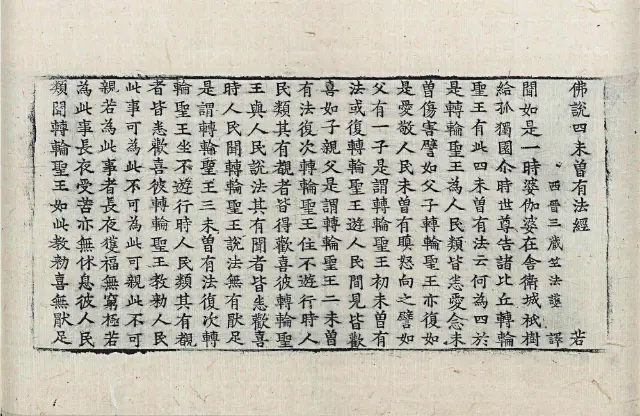 佛說四未曾有法經 若
西晉三藏竺法護 譯
聞如是一時婆伽婆在舍衛城祇樹
給孤獨園尒時世尊告諸比丘轉輪
聖王有此四未曾有法云何為四於
是轉輪聖王為人民類皆悉愛念未
曾傷害譬如父子轉輪聖王亦復如
是愛敬人民未曾有瞋怒向之譬如
父有一子是謂轉輪聖王初未曾有
法或復轉輪聖王遊人民間見皆歡
喜如子親父是謂轉輪聖王二未曾
有法復次轉輪聖王住不遊行時人
民類其有覩者皆得歡喜彼轉輪聖
王與人民說法其有聞者皆悉歡喜
時人民聞轉輪聖王說法無有猒足
是謂轉輪聖王三未曾有法復次轉
輪聖王坐不遊行時人民類其有覩
者皆悉歡喜彼轉輪聖王教勑人民
此事可為此不可為此可親此不可
親若為此事者長夜獲福無窮極若
為此事長夜受苦亦無休息彼人民
類聞轉輪聖王如此教勑喜無猒足